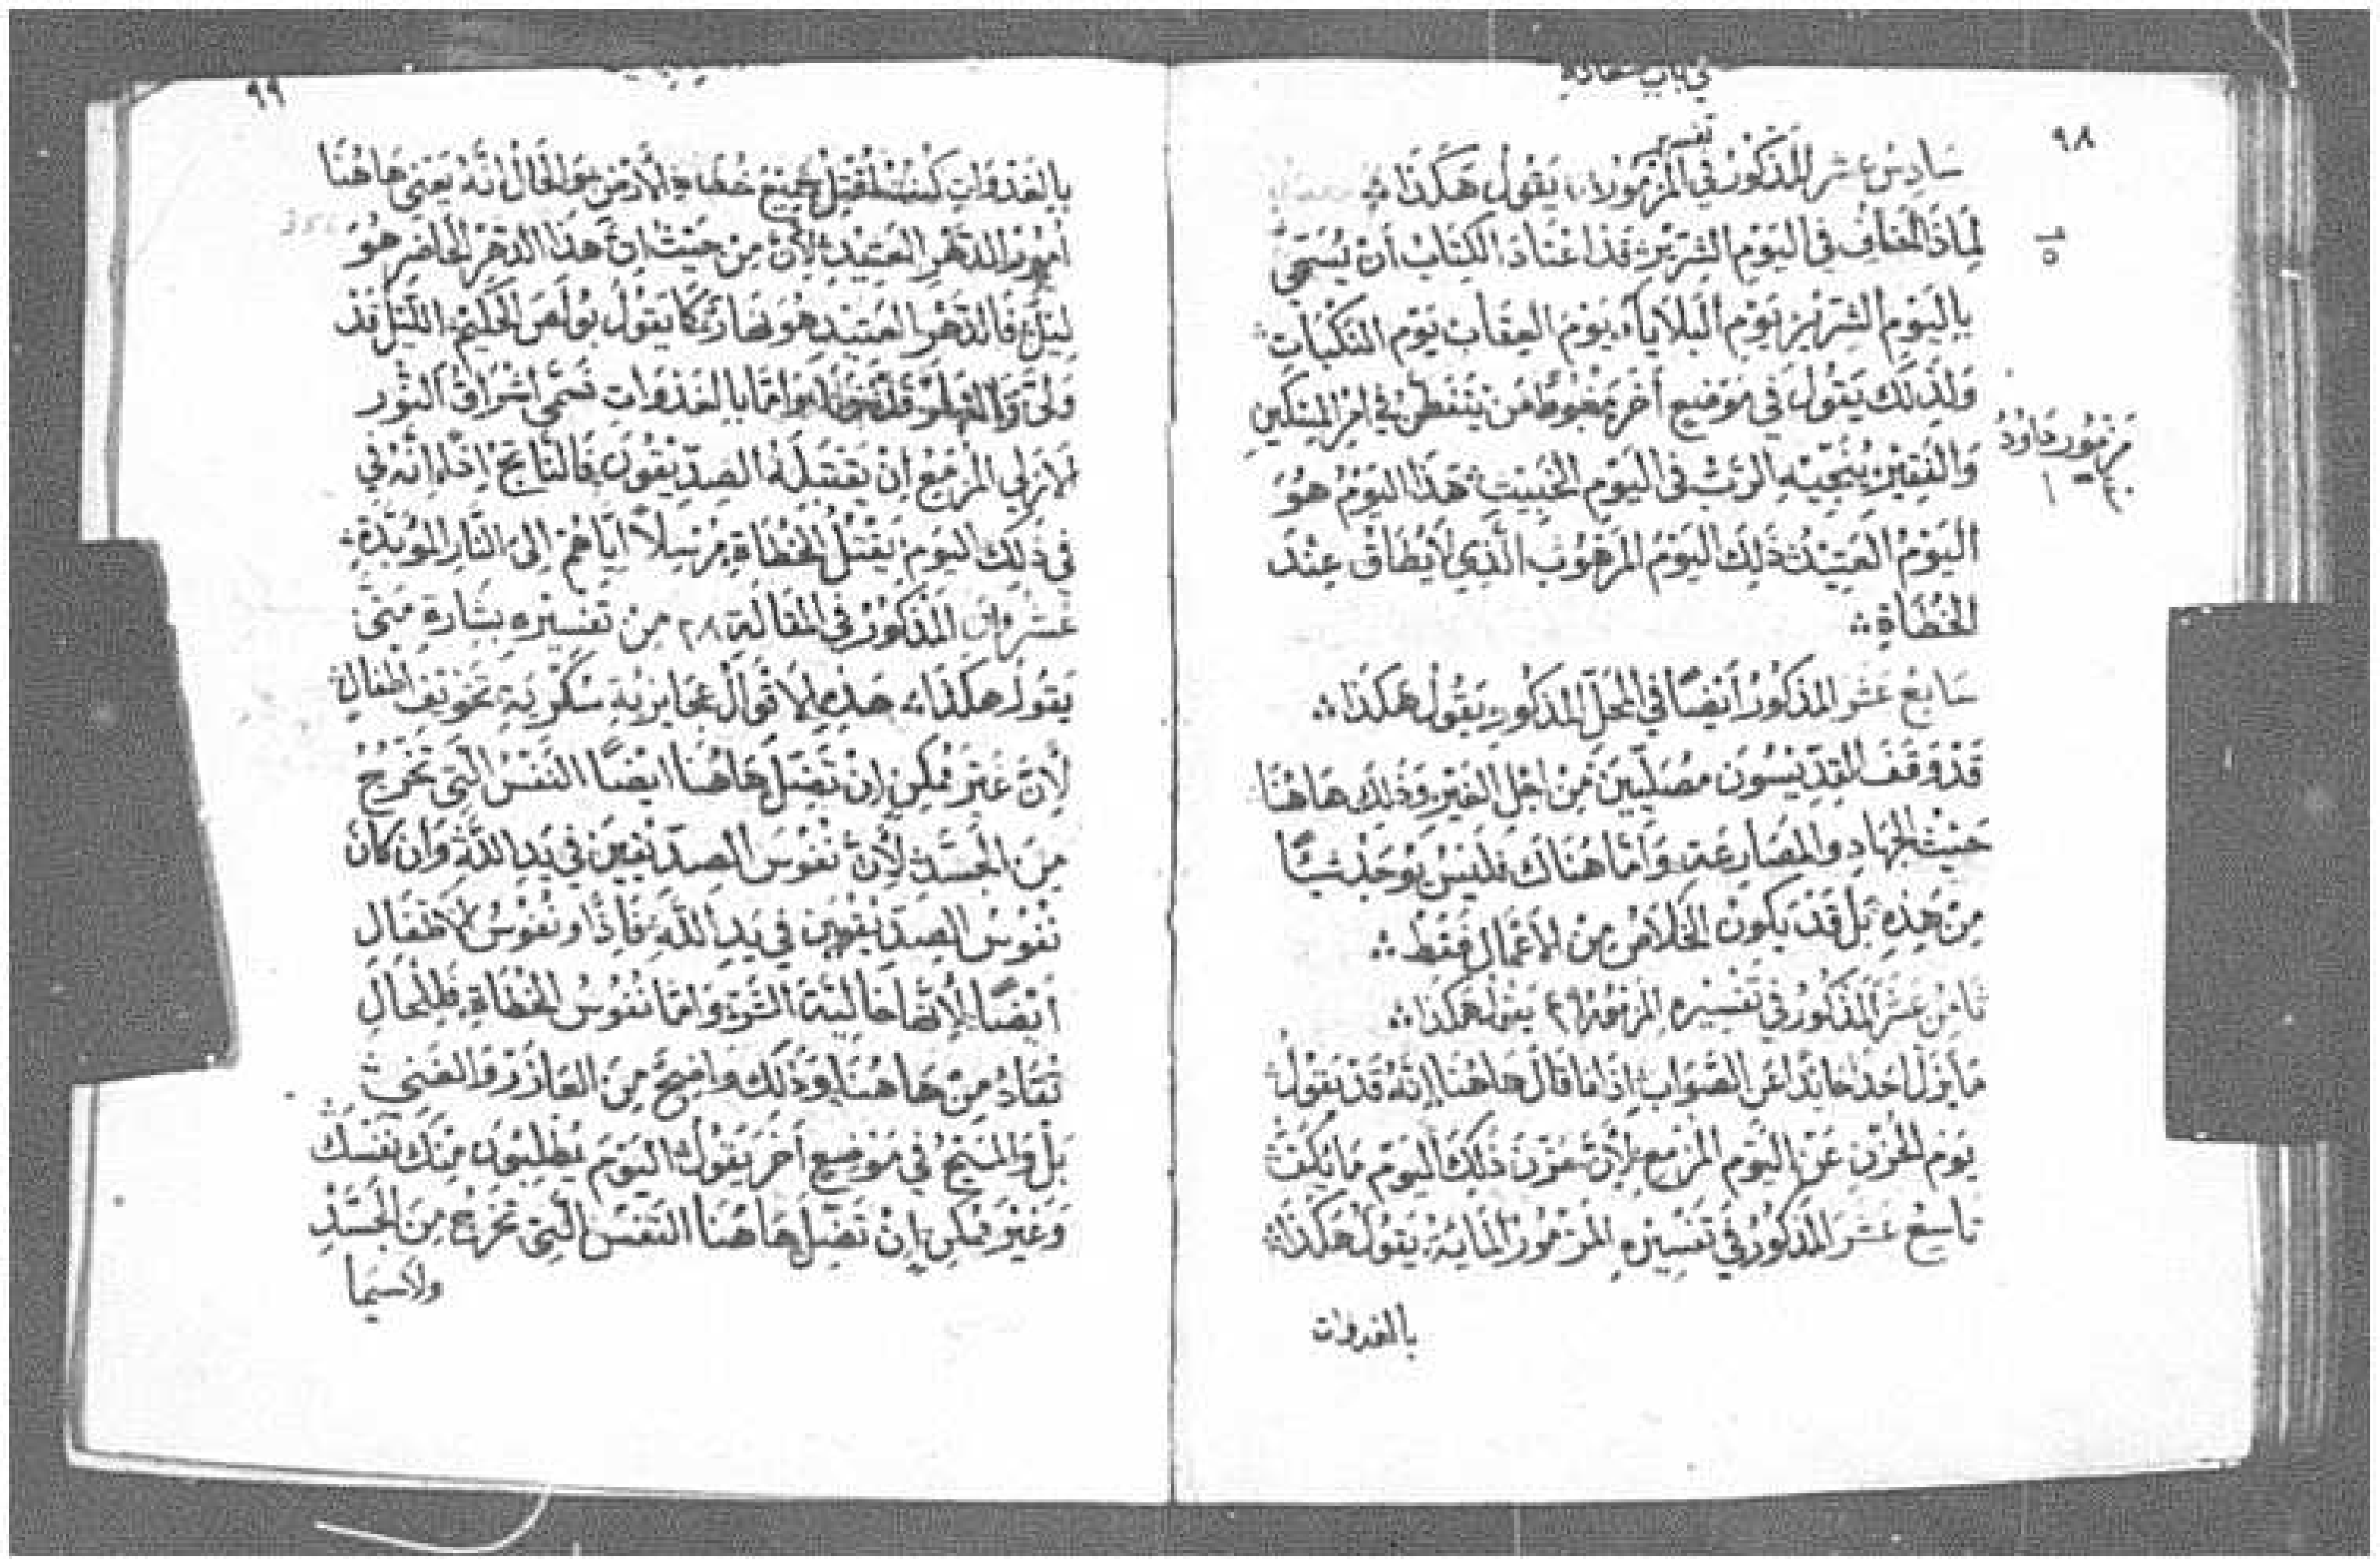 ٩٨
تفسير
سَادِسُ عشر المَذكوُر في المَزمُور يَقوُل هَكَذَا
لِمَاذَا اخَاف في اليَوم الشرّير قَد اعتَادَ الكِتَاب أن يُسَمى
بِاليَوم الشرّيرِ يَومِ البَلَايَا يَومَ العِقَاب يَوم النَكبَات
وَلِذَلك يَقوُل في مَوضِعٍ آخَر مَغبُوطٌ مَن يَتَفَطَّن في امرِ المِسكين
مَزمُور دَاوُدْ
وَالفَقِير يُنَجّيهِ الرَبّ في اليَومِ الخَبيث هَذا اليَوْم هوَ
اليَوْمُ العَتِيد ذَلِكَ اليَوْم المَرهوُب الَّذِي لَا يُطَاق عِنْدَ
الخُطَاةِ
سَابِع عَشَر المَذكوُر أيضًا في المَحَلّ المَذكوُر يَقوُل هَكَذَا
قَد وَقَفَ القِدّيسُون مُصَلّيِن مِن اجْل الغَير وَذلِك هَاهُنَا
حَيْث الجِهَادِ والمصَارعَة وَامّا هُنَاك فَلَيسَ يوُجَد شيًا
مِن هَذِهِ بَل قَد يَكوُن الخَلَاص مِن الاعمَال فَقَط
ثَامِن عَشَر المَذكوُر في تَفسِيرهِ المَزمُور ٤٩ يَقوُل هَكذَا
مَا يَزَل احَد حَايدًا عَن الصَوَاب إذَا مَا قَال هَاهُنَا إنّهُ قَد يَقوُل
يَوم الحُزن عَن اليَوم المُزمِع لِأنّ حزن ذَلِكَ اليَوم مَا يَكُفّ
تَاسِع عَشَرَ المَذكوُر في تَفسِيرهِ المَزمُور المَايَة يَقوُل هَكَذَا
بالغدوات
٩٩
بِالغَدَوَاتِ كُنتُ اقتل جَميع خُطَاة الأرض وَالحَال انَّهُ يَعني هَاهُنَا
أمُورَ الدَّهرِ العَتِيد لِأنّ مِن حَيثُ انّ هَذا الدَهر الحَاضِر هُوَ
لَيل فَالدَّهر العَتيد هوَ نَهَار كمَا يَقوُل بوُلص الحَكيم اللَيل قَد
وَلّى وَالنهار قَد وَامّا بالغَدَوَاتِ تُسَمّى اشرَاق النُور
الأزَلي المُزمِع إن يَقتَبِلَهُ الصدّيقوُن فَالنَاتج اذًا انّهُ في
في ذَلِك اليَوم يَقتُلُ الخُطَاةَ مُرسِلًا ايّاهُم إلى النَّار المؤبّدَة
عشرون المَذكوُر في المقَالَة ٢٨ من تَفسِيره بِشَارَةِ مَتّى
يَقوُل هكَذَا هَذِهِ الأقوَال عَجَايزيَة سكريَة تَخويف اطفَال
لأنّ غَير مُمكِن إن تَضِلَ هَاهُنَا ايضًا النَفسُ الَتي تَخرُجُ
مِنَ الجَسَد لأنّ نُفوُس الصِدّيقين في يَدِ اللَّه وَان كَانَ
نُفوُس الصِدّيقِين في يَدِ اللَّهِ فَإِذًا ونُفوُس الأطفَال
أيضًا لأنّهَا خَاليَة الشَر وَامّا نُفوُسُ الخُطَاةِ فَلِلحَال
تُقَاد مِن هَاهُنَا وَذَلك وَاضِحٌ مِنَ العَازَر وَالغَني
بَل وَالمَسيح في مَوضِعٍ آخَر يَقوُل اليَوم يُطلِبوُن مِنك نَفسَك
وَغَير مُمكِن إن تَضِلَ هَاهُنَا النَفسُ الَتي تَخرُج مِنَ الجَسَدِ
ولاسيما